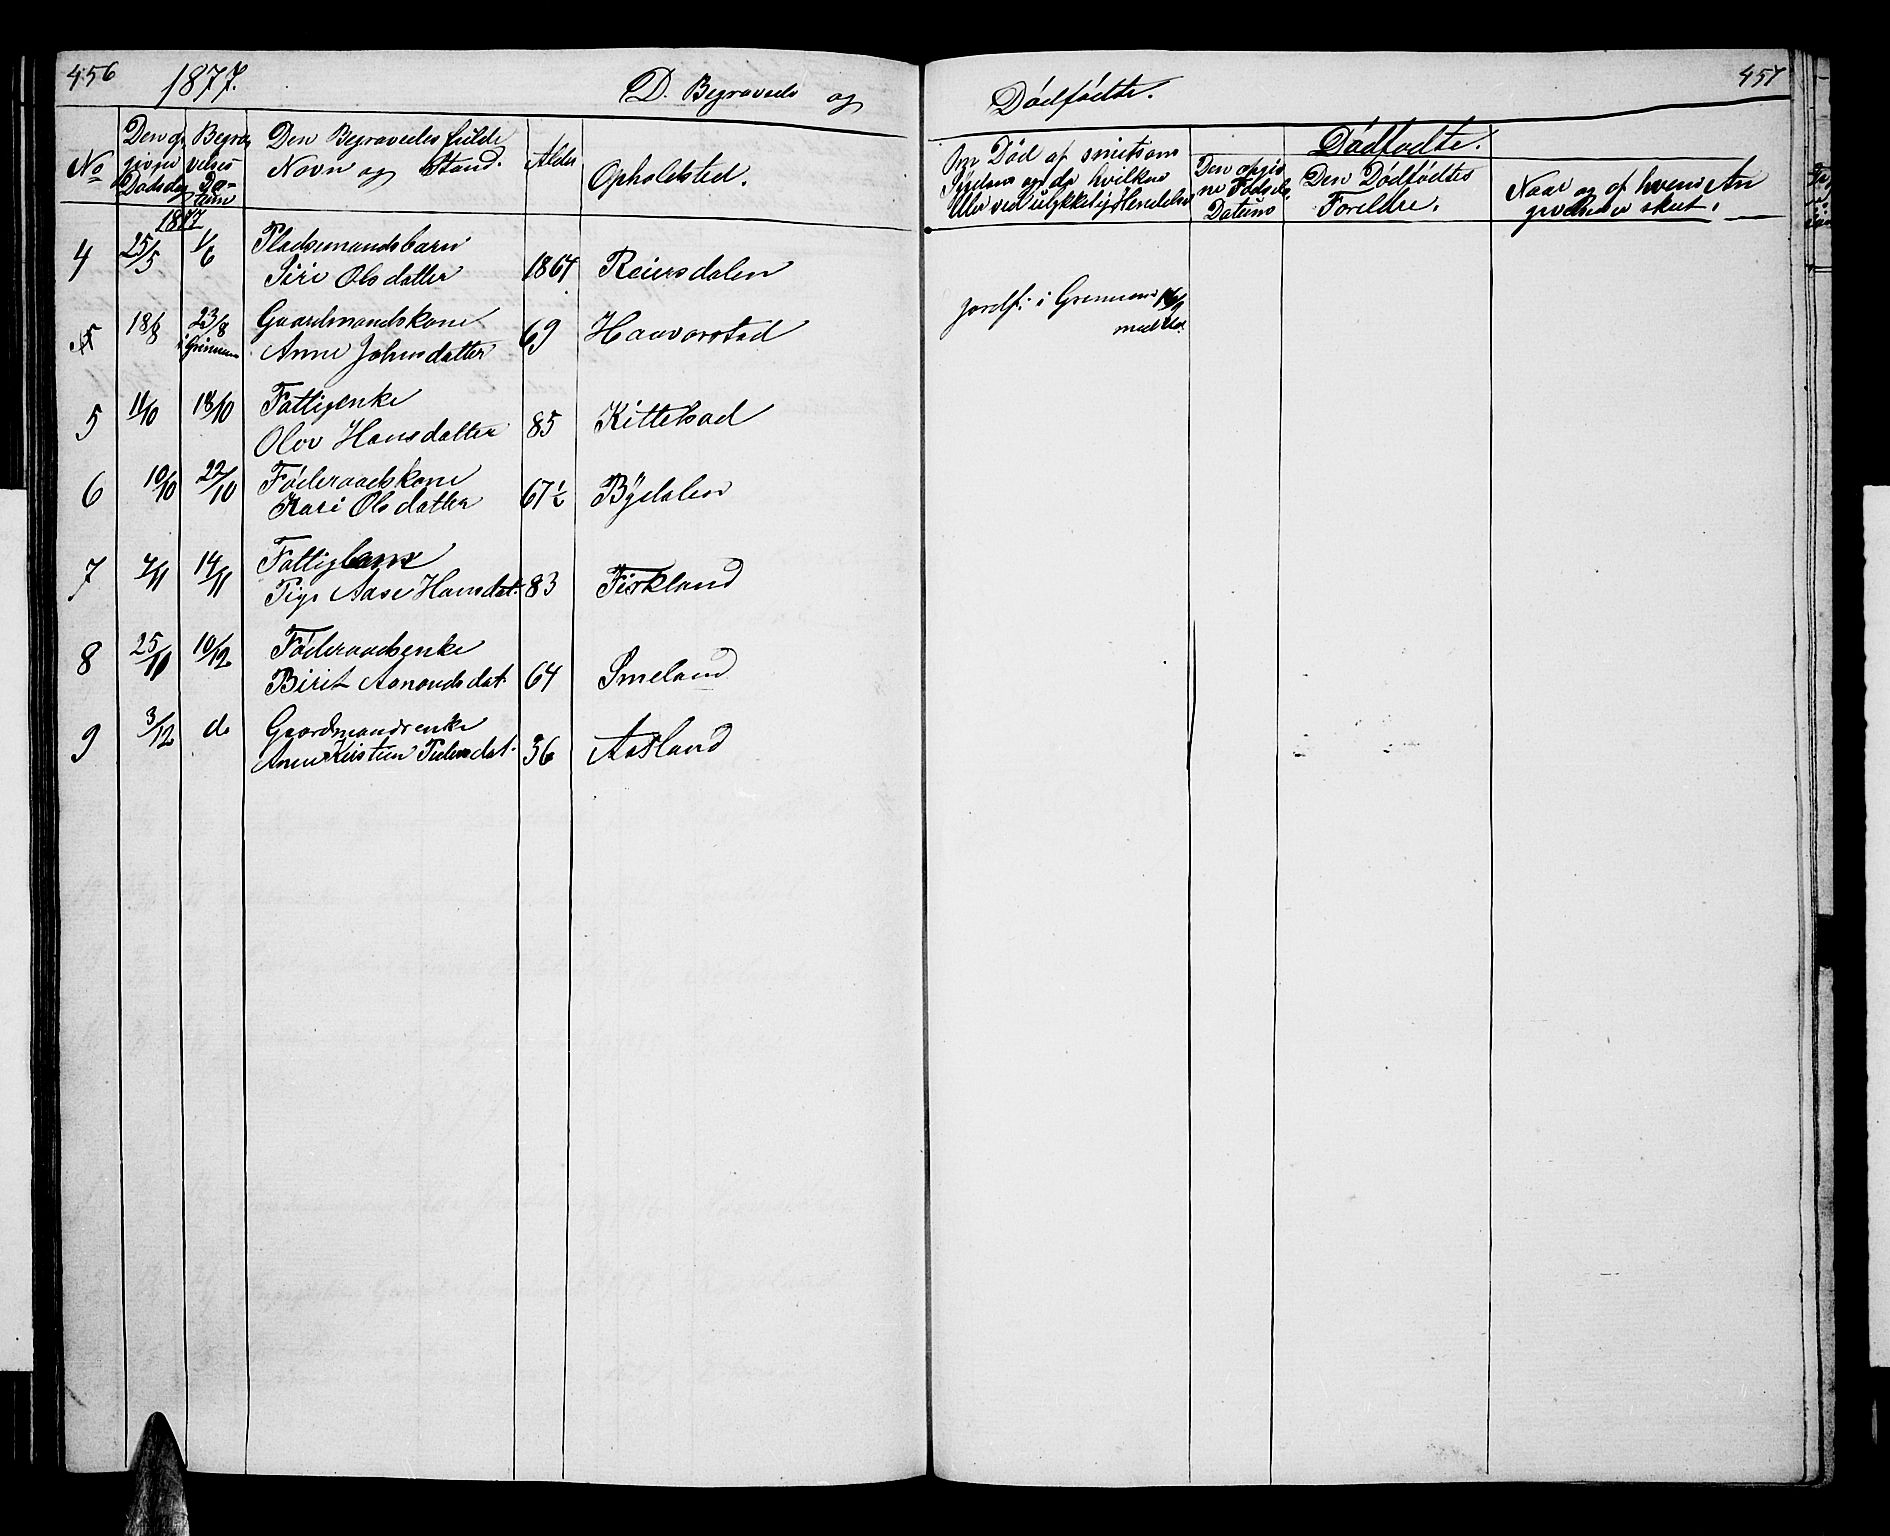 456 1877. D. Begravede og
Dødfødte. 457
No
Den op
givne
Dødsdag
Begra
velses
Da-
tum
Den Begravedes fulde
Navn og Stand.
Alder
Opholdsted.
Om Død af smitsom
Sygdom og da hvilken
Eller ved ulykkelig Hendelse
Dødfødte.
Den opgiv
ne Fødsels
Datum
Den Dødfødtes
Foreldre.
Naar og af hvem An
givelsen er skeet.
1877
4 25/5 1/6 Pladsemandsbarn
Siri Olsdatter 1864 Reiersdalen
5 18/8 23/8 Gaardmandskone
i Grinnem Anne Johnsdatter 69 Haavorstad
Jordf. i Grennem 16/9
5 11/10 18/10 Fattigenke
Olov Hansdatter 85 Kittelsad
6 10/10 22/10 Føderaadskone
Kari Olsdatter 67½ Bydalen
7 7/11 14/11 Fattiglem
Pige Aase Hansdat. 83 Firkland
8 25/10 10/12 Føderaadsenke
Birit Aanondsdat. 64 Smeland
9 3/12 do Gaardmandsenke
Anne Kirstine Pedersdat. 36 Aasland